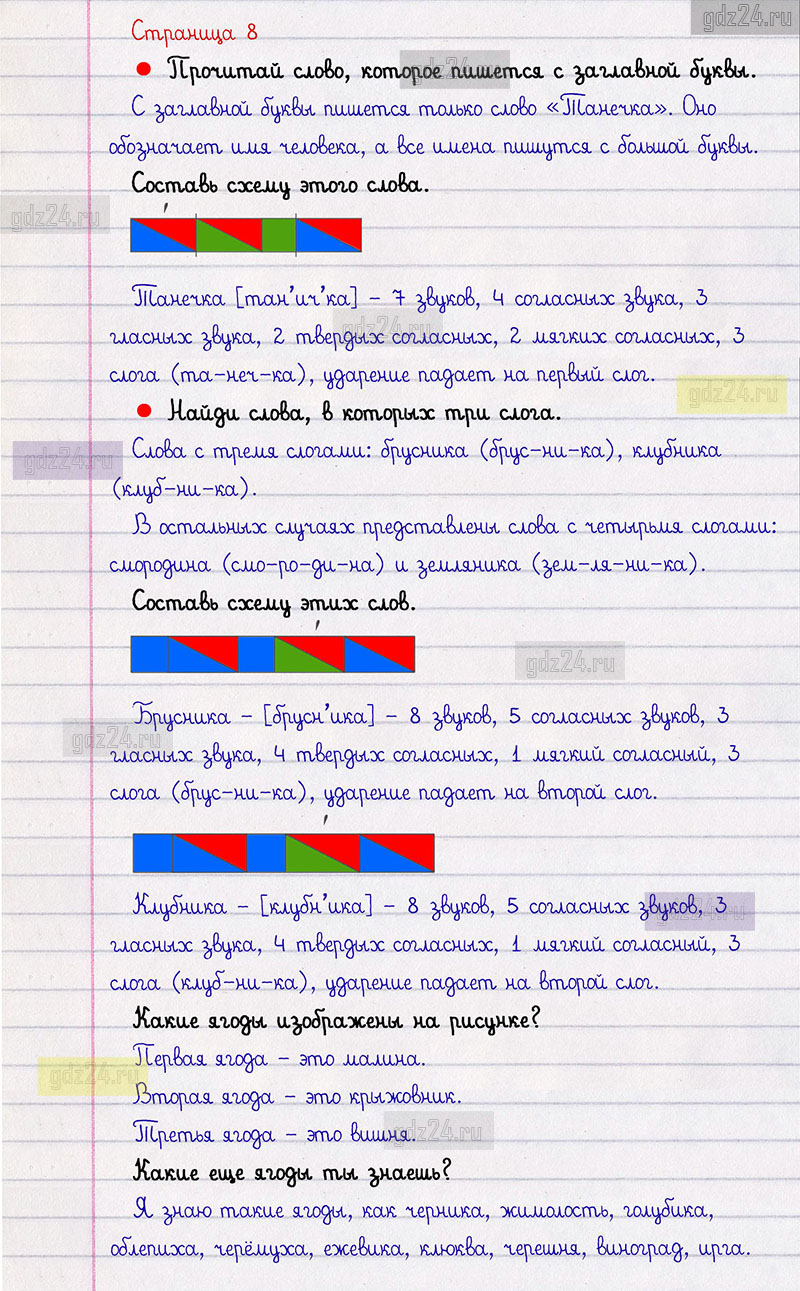 gdz24.ru
Страница 8
Прочитай слово, которое пишется с заглавной буквы.
gdz24.ru
С заглавной буквы пишется только слово «Танечка». Оно
обозначает имя человека, а все имена пишутся с большой буквы.
Составь схему этого слова.
gdz24.ru
Танечка [тан'ич'ка] – 7 звуков, 4 согласных звука, 3
gdz24.ru
гласных звука, 2 твердых согласных, 2 мягких согласных, 3
слога (та-неч-ка), ударение падает на первый слог.
gdz24.ru
Найди слова, в которых три слога.
Слова с тремя слогами: брусника (брус-ни-ка), клубника
gdz24.ru
(клуб-ни-ка).
В остальных случаях представлены слова с четырьмя слогами:
смородина (смо-ро-ди-на) и земляника (зем-ля-ни-ка).
Составь схему этих слов.
gdz24.ru
Брусника – [брусн'ика] – 8 звуков, 5 согласных звуков, 3
gdz24.ru
гласных звука, 4 твердых согласных, 1 мягкий согласный, 3
слога (брус-ни-ка), ударение падает на второй слог.
Клубника – [клубн'ика] – 8 звуков, 5 согласных звуков, 3
gdz24.ru
гласных звука, 4 твердых согласных, 1 мягкий согласный, 3
слога (клуб-ни-ка), ударение падает на второй слог.
Какие ягоды изображены на рисунке?
Первая ягода – это малина.
gdz24.ru
Вторая ягода – это крыжовник.
Третья ягода – это вишня.
gdz24.ru
Какие еще ягоды ты знаешь?
Я знаю такие ягоды, как черника, жимолость, голубика,
облепиха, черёмуха, ежевика, клюква, черешня, виноград, ирга.